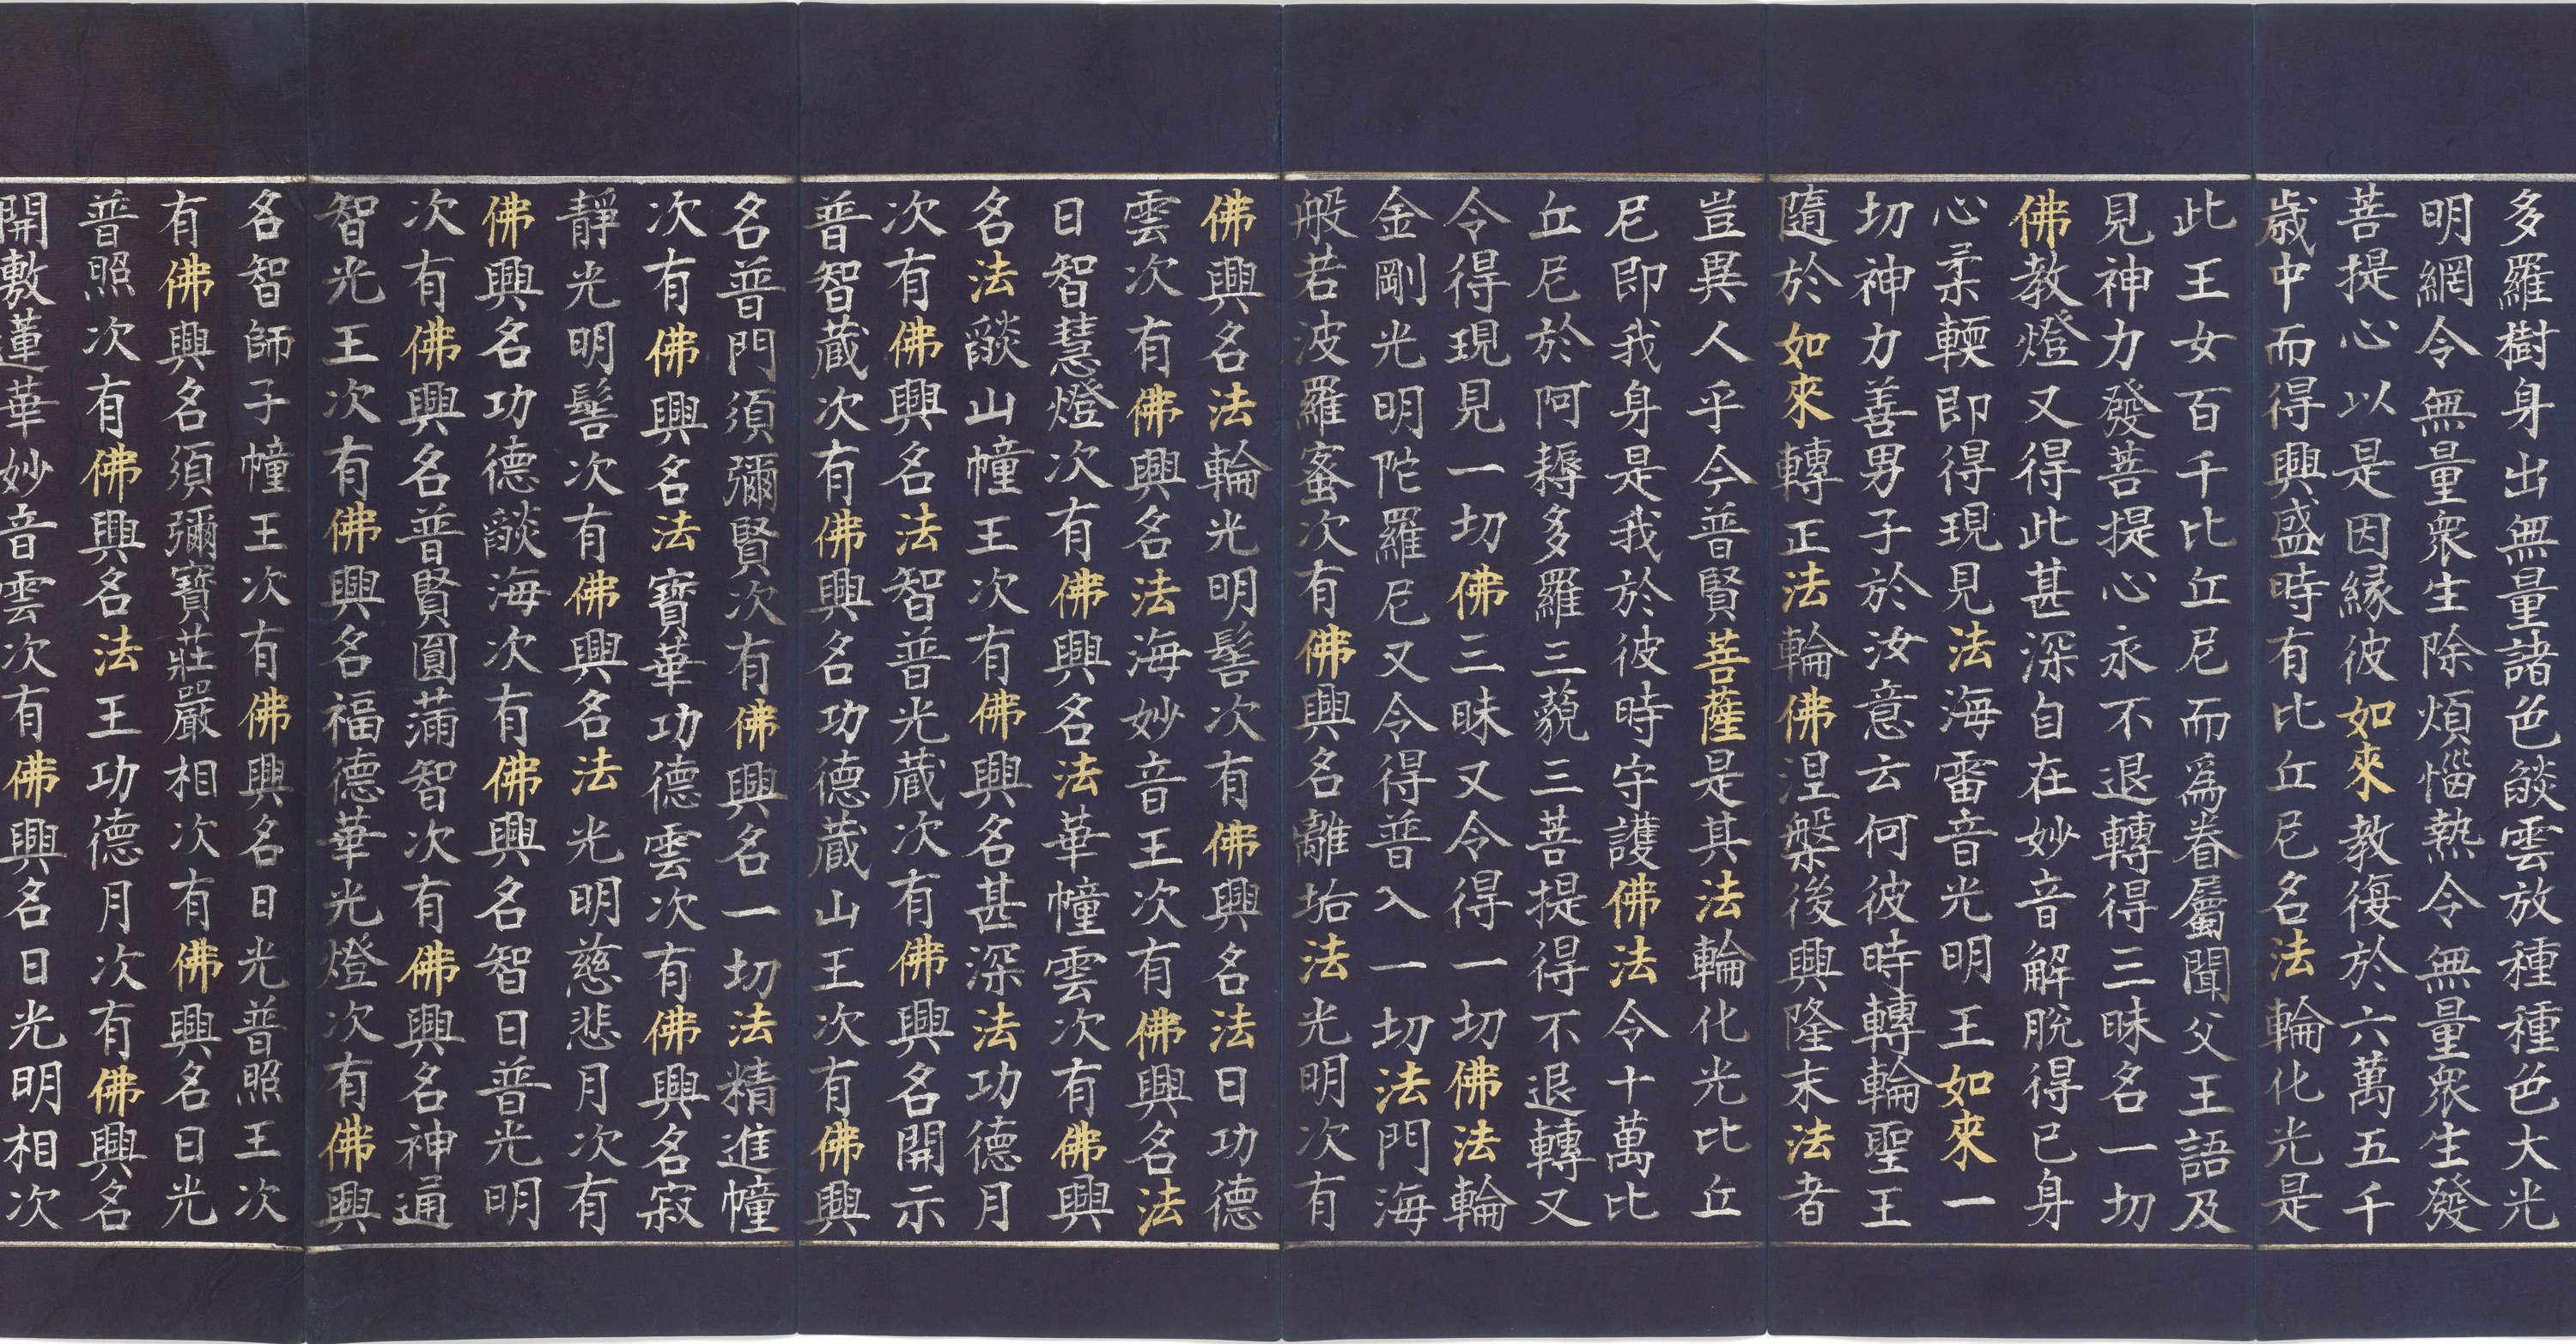 多羅樹身出無量諸色燄雲放種種色大光
明網令無量衆生除煩惱熱令無量衆生發
菩提心以是因緣彼如來教復於六萬五千
歲中而得興盛時有比丘尼名法輪化光是
此王女百千比丘尼而爲眷屬聞父王語及
見神力發菩提心永不退轉得三昧名一切
佛教燈又得此甚深自在妙音解脫得已身
心柔輭即得現見法海雷音光明王如來一
切神力善男子於汝意云何彼時轉輪聖王
隨於如來轉正法輪佛涅槃後興隆末法者
豈異人乎今普賢菩薩是其法輪化光比丘
尼即我身是我於彼時守護佛法令十萬比
丘尼於阿耨多羅三藐三菩提得不退轉又
令得現見一切佛三昧又令得一切佛法輪
金剛光明陀羅尼又令得普入一切法門海
般若波羅蜜次有佛興名離垢法光明次有
佛興名法輪光明髻次有佛興名法日功德
雲次有佛興名法海妙音王次有佛興名法
日智慧燈次有佛興名法華幢雲次有佛興
名法燄山幢王次有佛興名甚深法功德月
次有佛興名法智普光藏次有佛興名開示
普智藏次有佛興名功德藏山王次有佛興
名普門須彌賢次有佛興名一切法精進幢
次有佛興名法寶華功德雲次有佛興名寂
靜光明髻次有佛興名法光明慈悲月次有
佛興名功德燄海次有佛興名智日普光明
次有佛興名普賢圓滿智次有佛興名神通
智光王次有佛興名福德華光燈次有佛興
名智師子幢王次有佛興名日光普照王次
有佛興名須彌寶莊嚴相次有佛興名日光
普照次有佛興名法王功德月次有佛興名
開敷蓮華妙音雲次有佛興名日光明相次